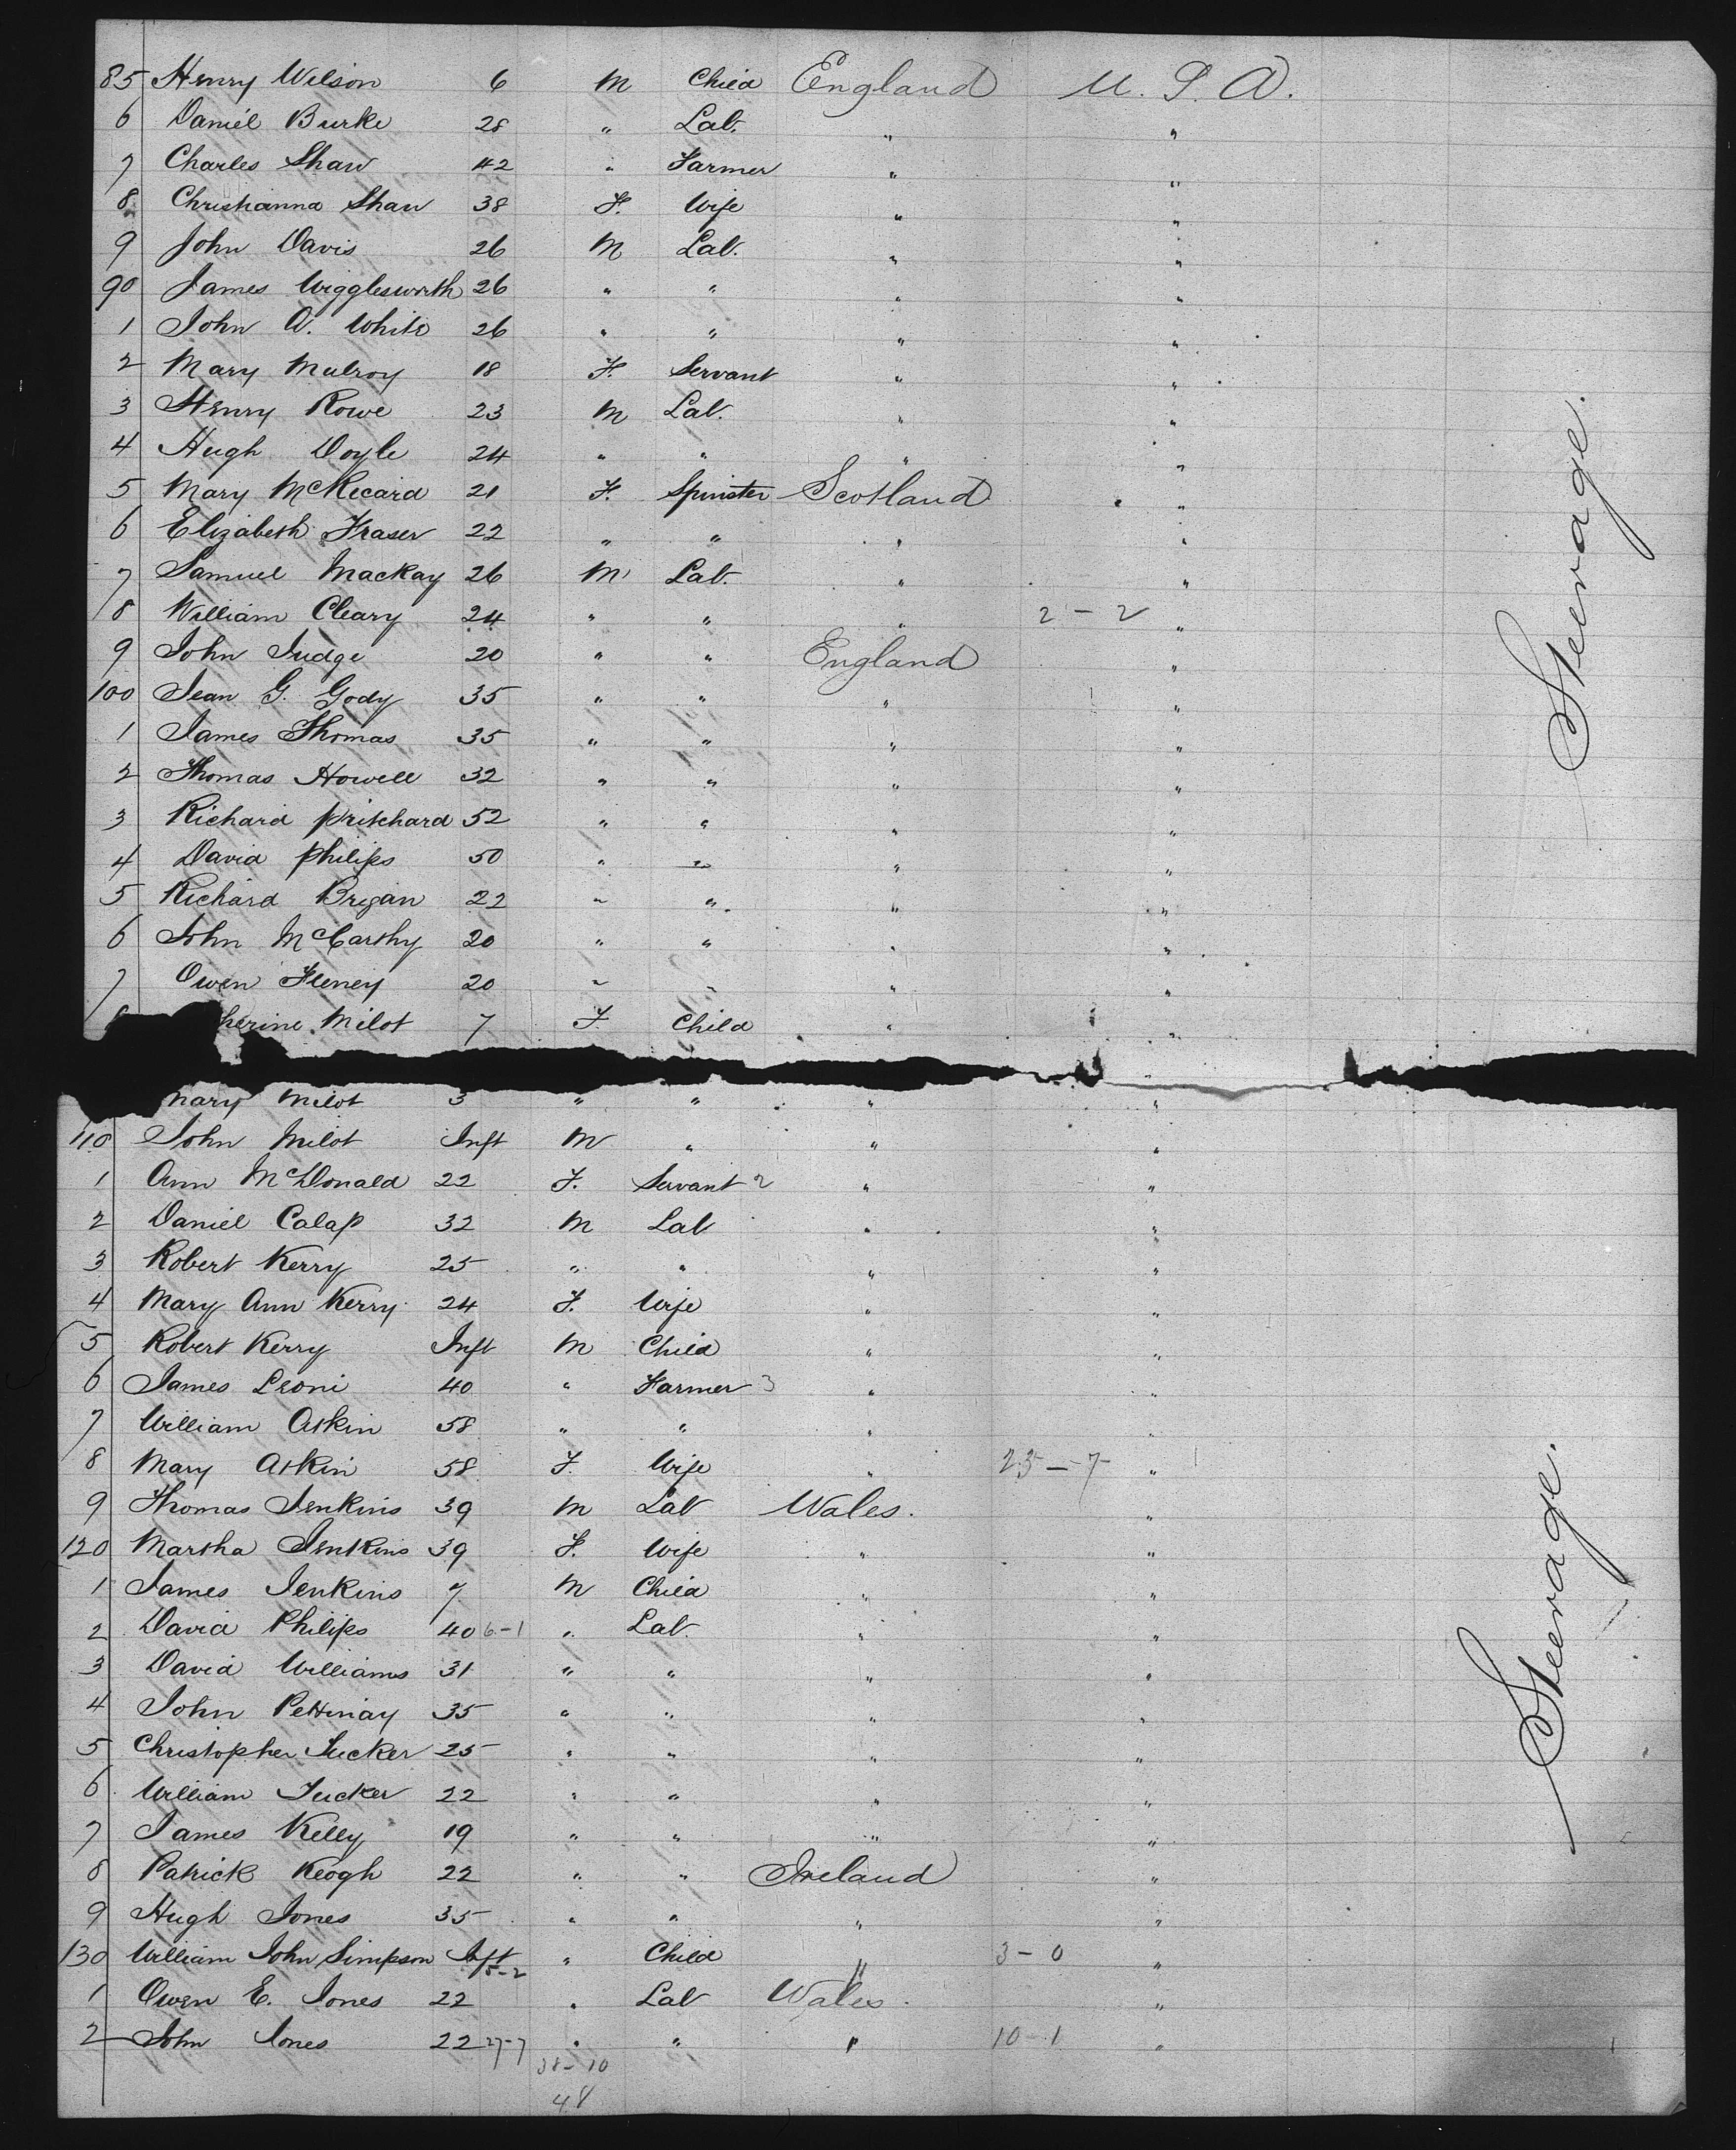 85 Henry Wilson 6 M Child England U. S. A.
6 Daniel Burke 28 " Lab. " "
7 Charles Shaw 42 " Farmer " "
8 Christianna Shaw 38 F. Wife " "
9 John Davis 26 M Lab. " "
90 James Wigglesworth 26 " " " "
1 John A. White 26 " " " "
2 Mary Mulroy 18 F. Servant " "
3 Henry Rowe 23 M Lab. " "
4 Hugh Doyle 24 " " " "
5 Mary 21 F. Spinster Scotland "
6 Elizabeth Fraser 22 " " " "
7 Samuel Mackay 26 M Lab. " "
8 William Cleary 24 " " " 2 - 2 "
9 John Judge 20 " " England "
100 Jean G. Gody 35 " " " "
1 James Thomas 35 " " " "
2 Thomas Howell 32 " " " "
3 Richard Pritchard 52 " " " "
4 David Philips 50 " " " "
5 Richard 22 " " " "
6 John McCarthy 20 " " " "
7 Owen 20 " " " "
herine Milot 7 F. Child " "
Mary Milot 3 " " " "
110 John Milot Inft M " " "
1 Ann McDonald 22 F. Servant 2 " "
2 Daniel 32 M Lab " "
3 Robert Kerry 25 " " " "
4 Mary Ann Kerry 24 F. Wife " "
5 Robert Kerry Inft M Child " "
6 James Leoni 40 " Farmer 3 " "
7 William Atkin 58 " " " "
8 Mary Atkin 58 F. Wife " 23 - 7 "
9 Thomas Jenkins 39 M Lab Wales. "
120 Martha Jenkins 39 F. Wife " "
1 James Jenkins 7 M Child " "
2 David Philips 40 6-1 " Lab. " "
3 David Williams 31 " " " "
4 John 35 " " " "
5 Christopher Tucker 25 " " " "
6 William Tucker 22 " " " "
7 James Kelly 19 " " " "
8 Patrick Keogh 22 " " Ireland "
9 Hugh Jones 35 " " " "
130 William John Simpson Inft " Child " 3 - 0 "
5-2
1 Owen E. Jones 22 " Lab Wales. "
2 John Jones 22 27-7 " " " 10 - 1 "
38 - 10
48
Steerage.
Steerage.